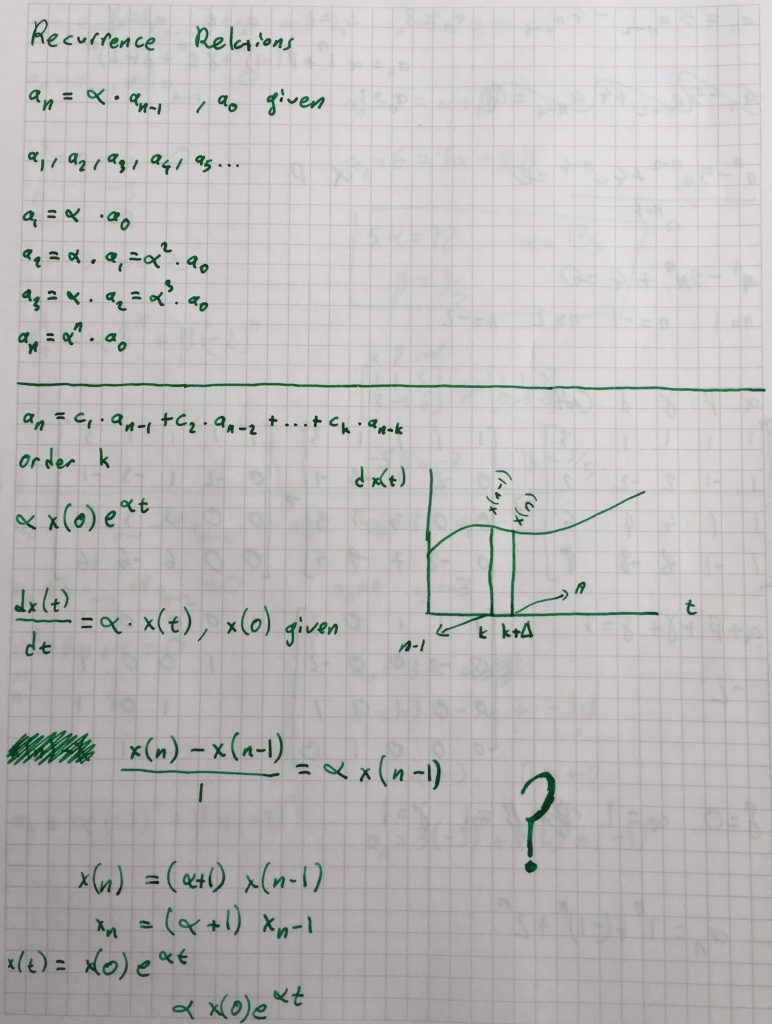 Recurrence Relations
aₙ = α · aₙ₋₁ , a₀ given
a₁, a₂, a₃, a₄, a₅...
a₁ = α · a₀
a₂ = α · a₁ = α² · a₀
a₃ = α · a₂ = α³ · a₀
aₙ = αⁿ · a₀
aₙ = c₁ · aₙ₋₁ + c₂ · aₙ₋₂ + ... + cₖ · aₙ₋ₖ
order k
α x(0) e^αt
dx(t)
x(n-1)
x(n)
n
t
k k+Δ
n-1
dx(t)/dt = α · x(t), x(0) given
(x(n) - x(n-1))/1 = α x(n-1)
?
x(n) = (α+1) x(n-1)
xₙ = (α+1) xₙ-1
x(t) = x(0) e^αt
α x(0) e^αt